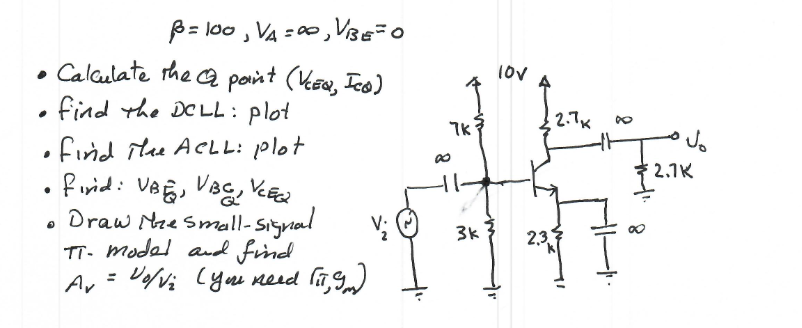 β = 100, VA = ∞, VBE = 0
• Calculate the Q point (VCEQ, ICQ)
• find the DCLL: plot
• find the ACLL: plot
• find: VBEQ, VBCQ, VCEQ
• Draw the small-signal
π- model and find
Av = Vo/Vi (you need rπ, gm)
10V
7K
2.7K
∞
Vo
2.7K
∞
Vi
3K
2.3K
∞